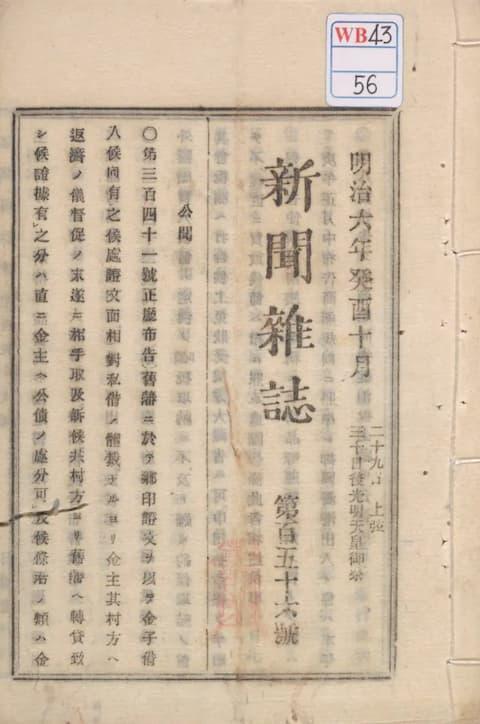 WB43
56
明治六年癸酉十月
二十九日 上弦
三十日後光明天皇御祭
新聞雜誌
第百五十六號
公聞
〇第三百四十一號正廳布告舊藩ニ於テ鄕印證文ヲ以テ金子借
入候向有之候處證文面相對私借ノ體裁 ヨリ金主其村方ヘ
返濟ノ儀督促ノ末遂ニ相手取及訴候共村方ヨリ舊藩ヘ轉貸致
シ候證據有之分ハ直ニ金主ヘ公債ノ處分可及候條 ノ類ハ金